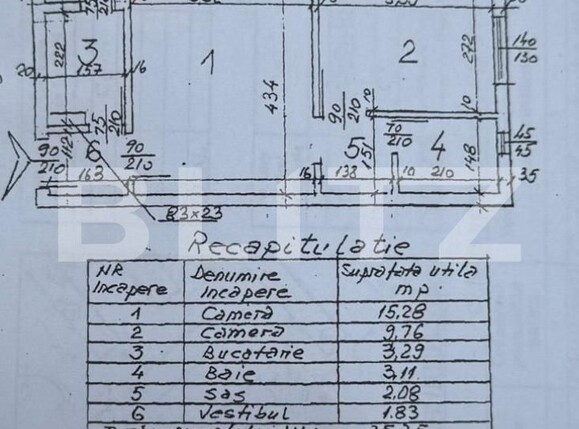 3
222
157
16
20
1
2
434
272
140
130
90
210
10
10
75
210
6
142
90
210
163
70
210
5
151
70
210
4
148
45
45
16
138
10
210
35
23x23
BLITZ
Recapitulatie
NR Incapere Denumire Incapere Suprafata utila mp
1 Camera 15,28
2 Camera 9,76
3 Bucatarie 3,29
4 Baie 3,11
5 Sas 2,08
6 Vestibul 1.83